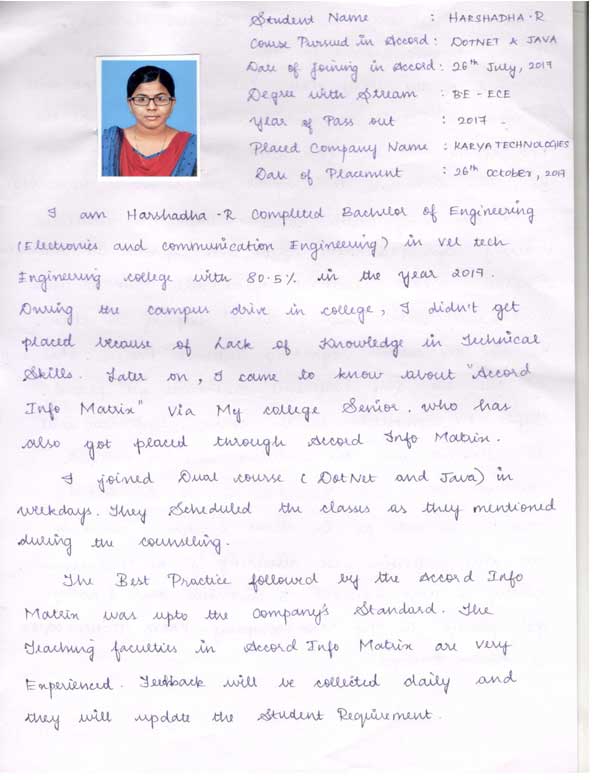 Student Name : HARSHADHA-R
Course Pursued in Accord : DOTNET & JAVA
Date of Joining in Accord : 26th July, 2017
Degree with Stream : BE - ECE
Year of Pass out : 2017
Placed Company Name : KARYA TECHNOLOGIES
Date of Placement : 26th October, 2017
I am Harshadha-R Completed Bachelor of Engineering
(Electronics and communication Engineering) in Vel tech
Engineering college with 80.5% in the year 2017.
During the campus drive in college, I didn't get
placed because of Lack of Knowledge in Technical
Skills. Later on, I came to know about "Accord
Info Matrix" Via My college Senior. who has
also got placed through Accord Info Matrix.
I joined Dual course (DotNet and Java) in
weekdays. They Scheduled the classes as they mentioned
during the counslling.
The Best Practice followed by the Accord Info
Matrix was upto the Company's Standard. The
Teaching faculties in Accord Info Matrix are very
Experienced. Feedback will be collected daily and
they will update the Student Requirement.